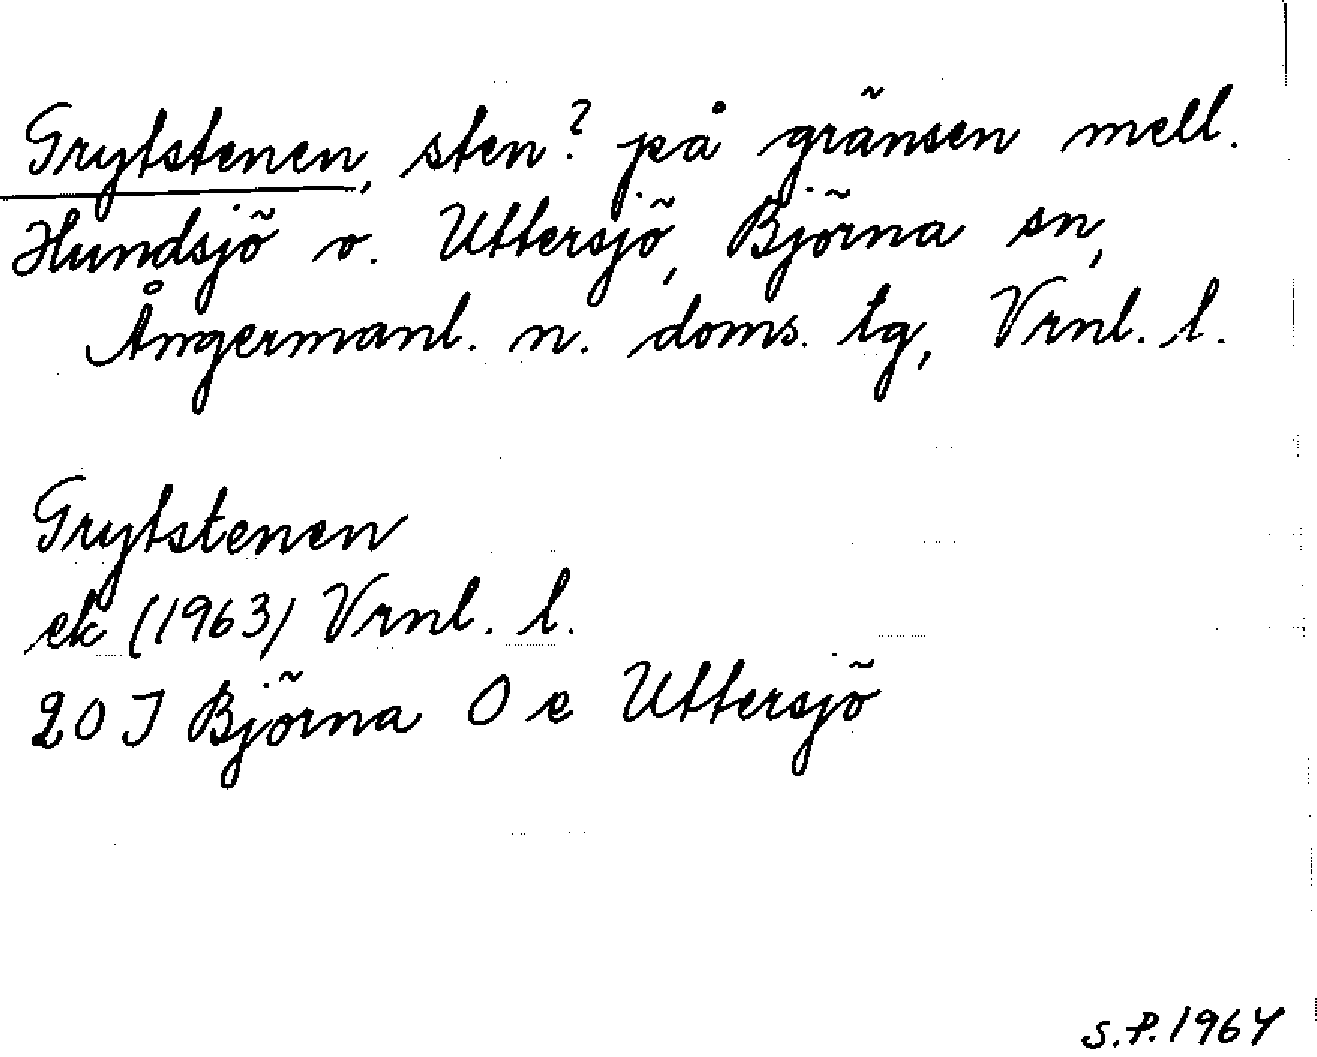 Grytstenen, sten? på gränsen mell.
Hundsjö o. Uttersjö, Björna sn,
Ångermanl. n. doms. tg, Vrnl. l.
Grytstenen
ek (1963) Vrnl. l.
20 J Björna 0 e Uttersjö
S.P. 1964